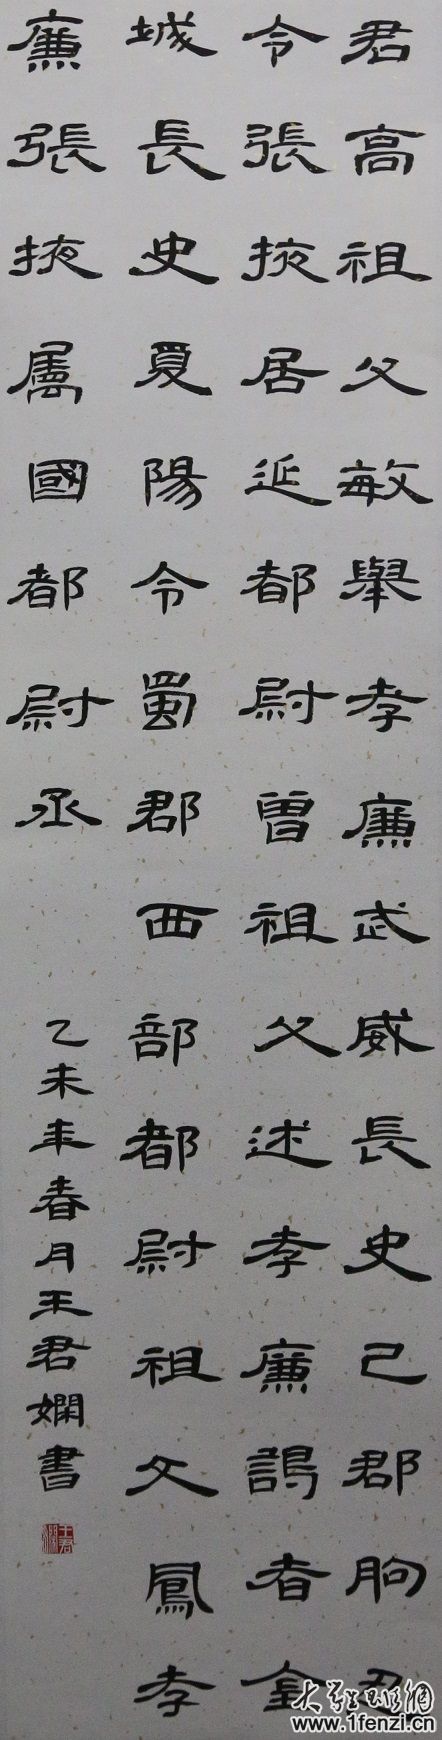 君高祖父敏舉孝廉武威長史己郡朐忍
令張掖居延都尉曾祖父述孝廉謁者金
城長史夏陽令蜀郡西部都尉祖父鳳孝
廉張掖属國都尉丞
乙未年春月王君嫻書
www.1fenzi.cn